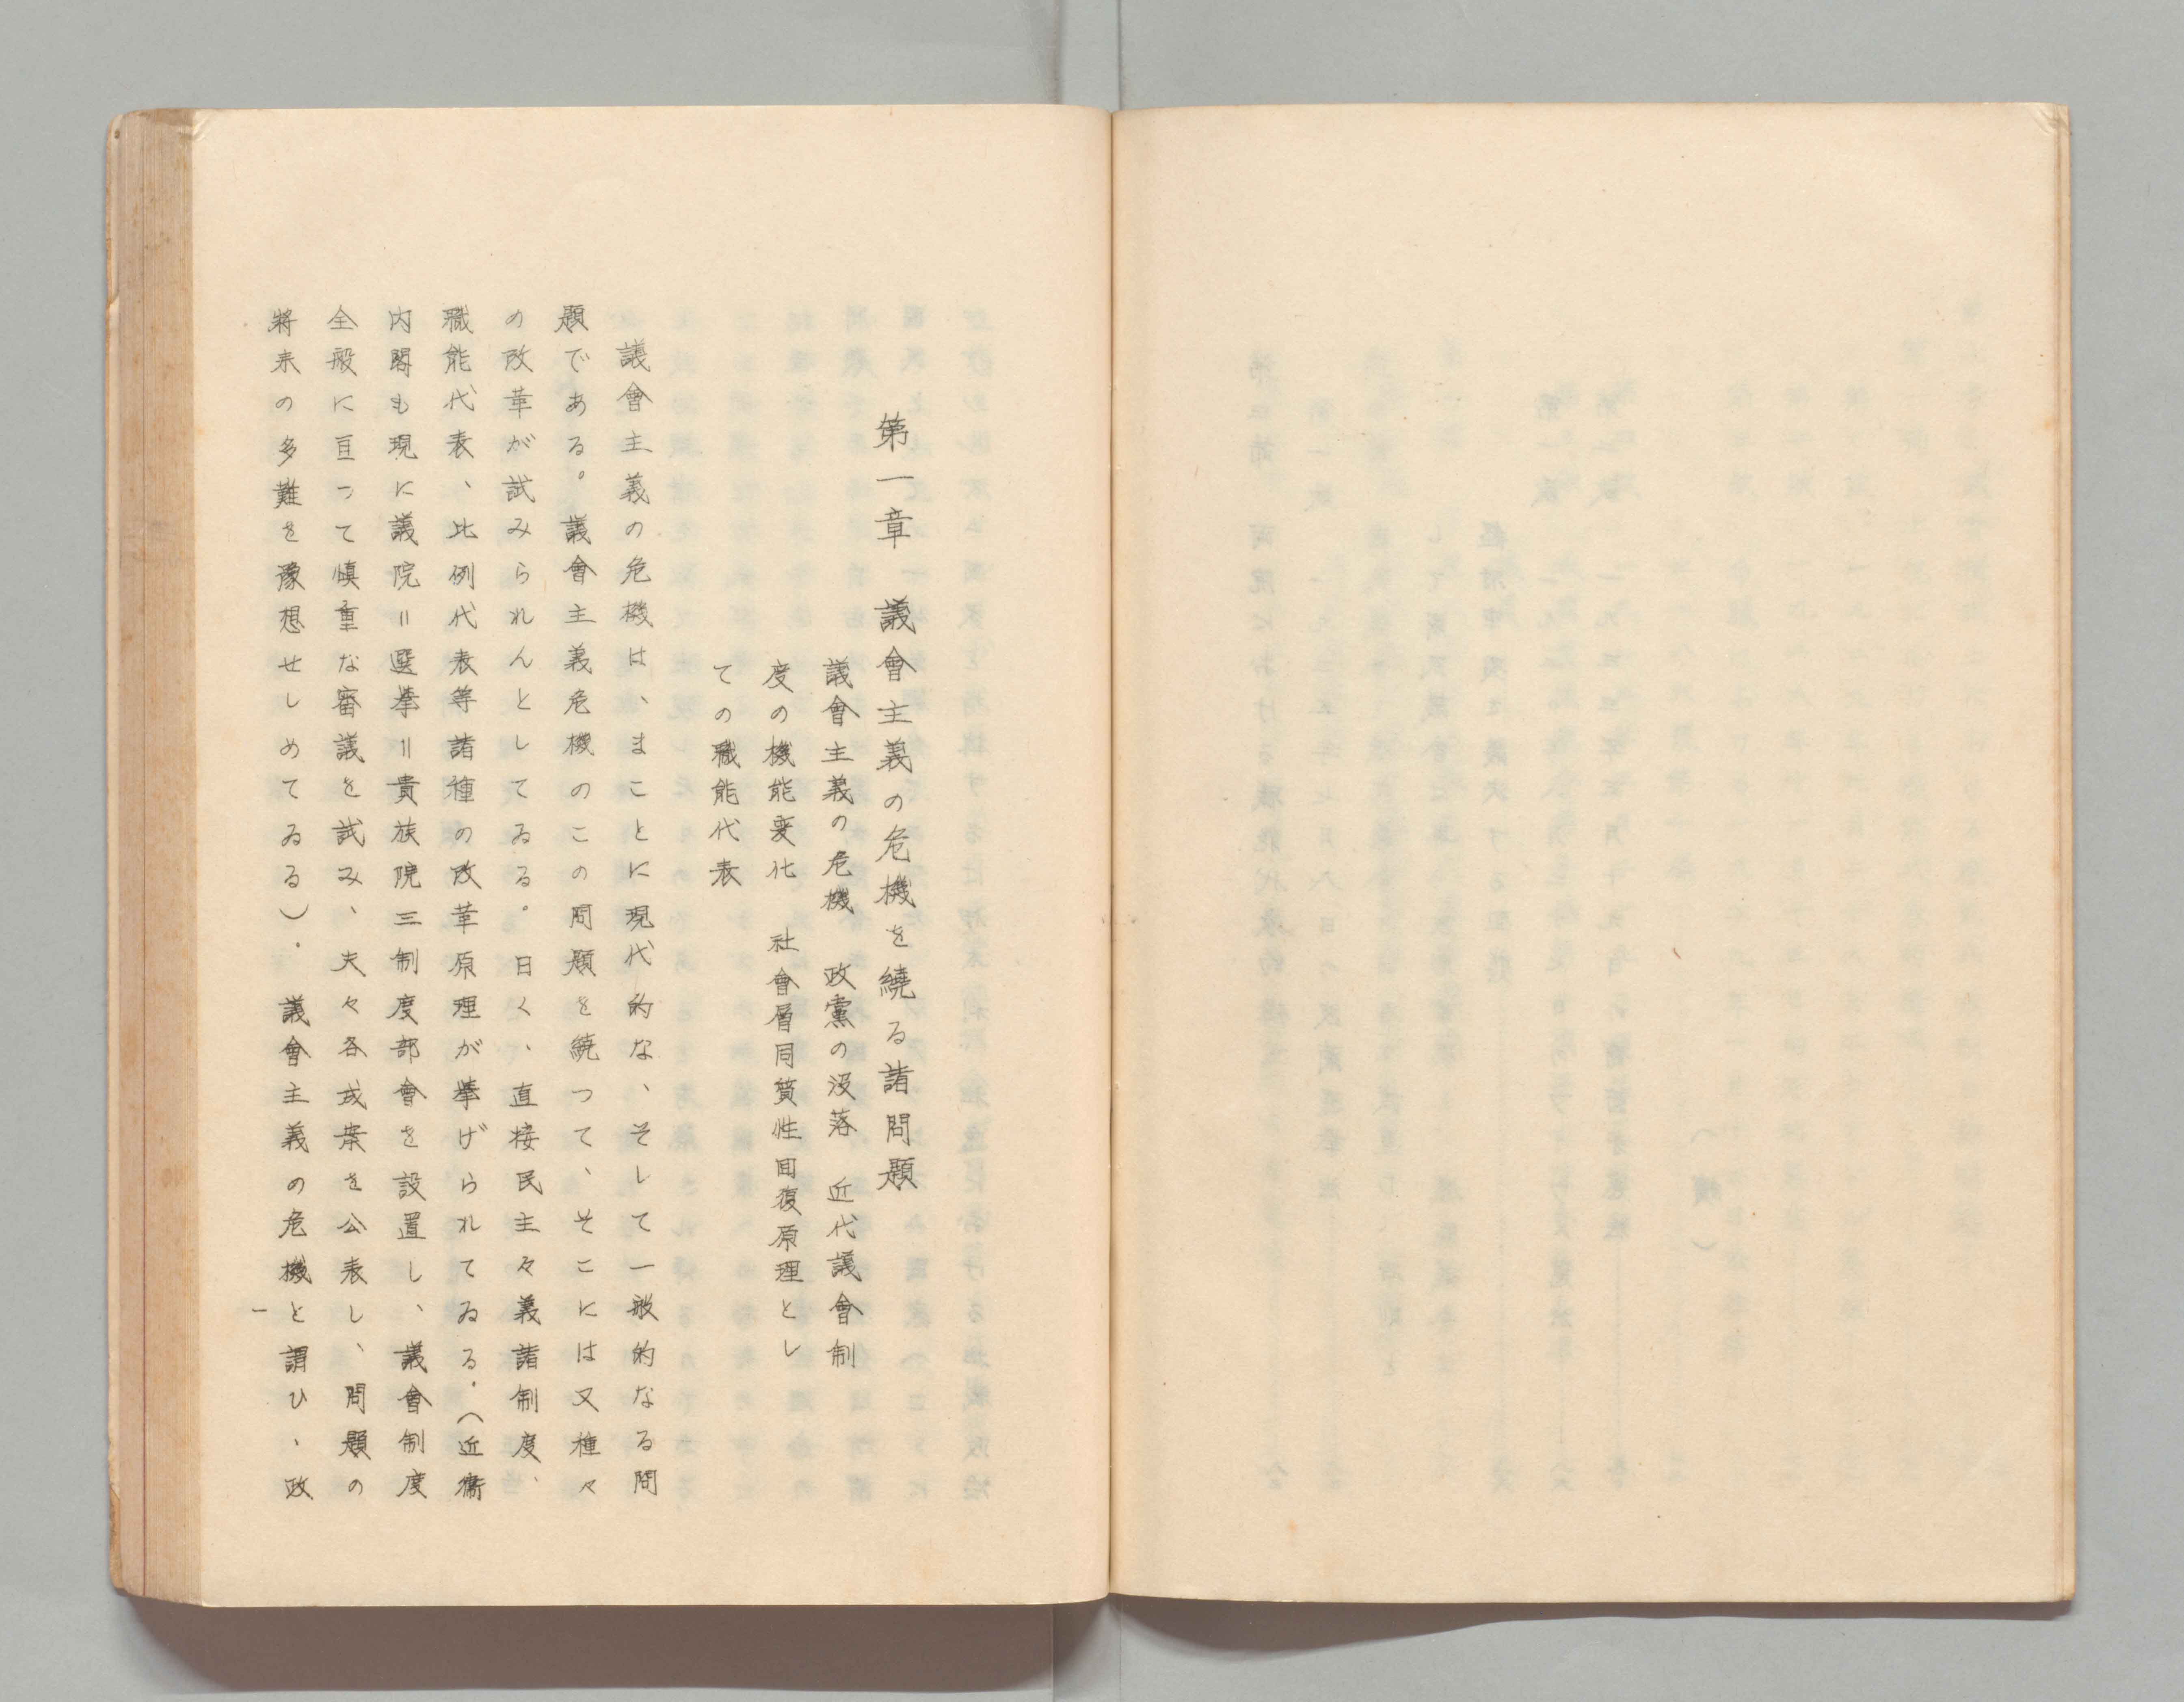 第一章　議會主義の危機を繞る諸問題
議會主義の危機　政黨の没落　近代議會制
度の機能変化　社會層同質性囬復原理とし
ての職能代表
議會主義の危機は、まことに現代的な、そして一般的なる問
題である。議會主義危機のこの問題を繞つて、そこには又種々
の改革が試みられんとしてゐる。曰く、直接民主々義諸制度、
職能代表、比例代表等諸種の改革原理が挙げられてゐる.（近衛
内閣も現に議院＝選挙＝貴族院三制度部會を設置し、議會制度
全般に亘つて慎重な審議を試み、夫々各成案を公表し、問題の
將来の多難を豫想せしめてゐる）.議會主義の危機と謂ひ、政
一